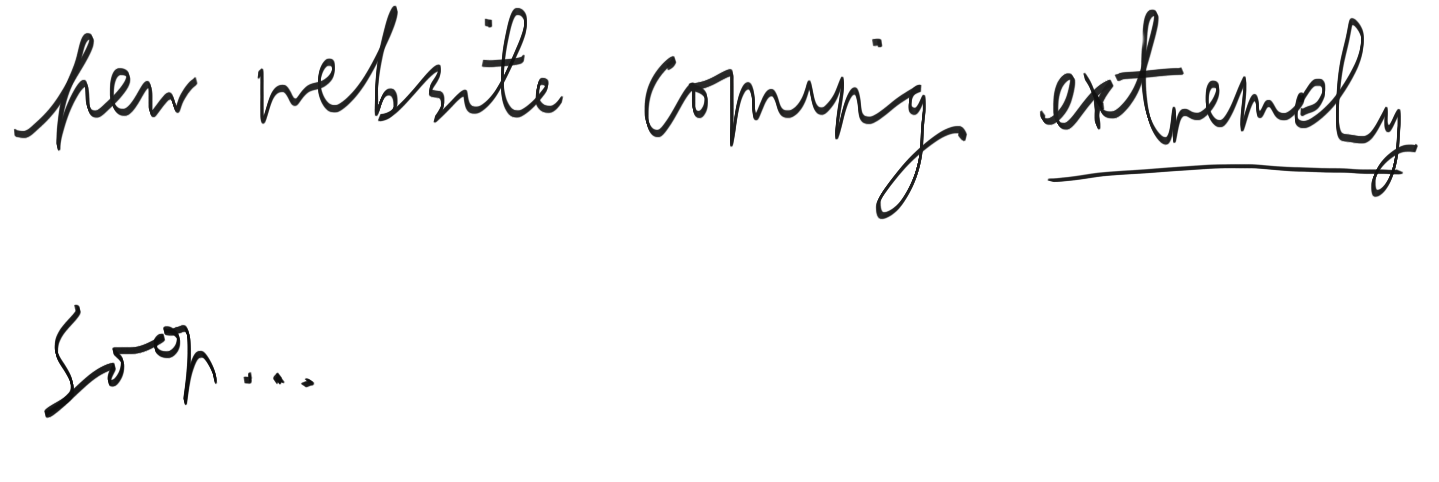 new website coming extremely
soon...